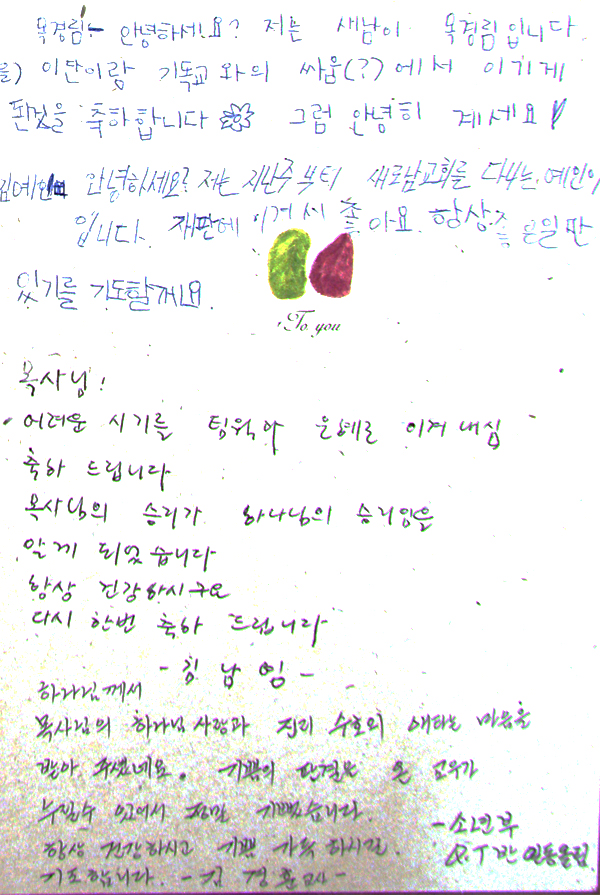 목경림- 안녕하세요? 저는 새남이 목경림입니다.
을) 이단이랑 기독교와의 싸움(??)에서 이기게
된것을 축하합니다 그럼 안녕히 계세요!
안녕하세요? 저는 지난주부터 새로남교회를 다니는 예인이
입니다. 재판에 이겨서 좋아요. 항상 좋은일만
있기를 기도할게요.
To you
목사님!
어려운 시기를 팀워크와 은혜로 이겨내심
축하 드립니다
목사님의 승리가 하나님의 승리임을
알게 되었습니다
항상 건강하시구요
다시 한번 축하 드립니다
하나님께서
목사님의 하나님 사랑과 진리 수호의 애타는 마음을
받아 주셨네요. 기쁨의 판결을 온 교우가
누릴수 있어서 정말 기뻤습니다.
- 소년부
항상 건강하시고 기쁨 가득 하시길
Q.T반 일동올림
기도합니다. - 김경훈